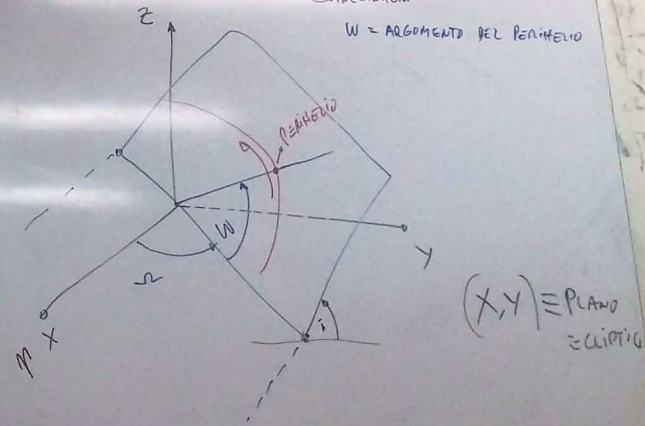 W = ARGOMENTO DEL PERIHELIO
Z
PERIHELIO
W
Y
Ω
i
X
(X,Y) ≡ PLANO
ECLIPTIC